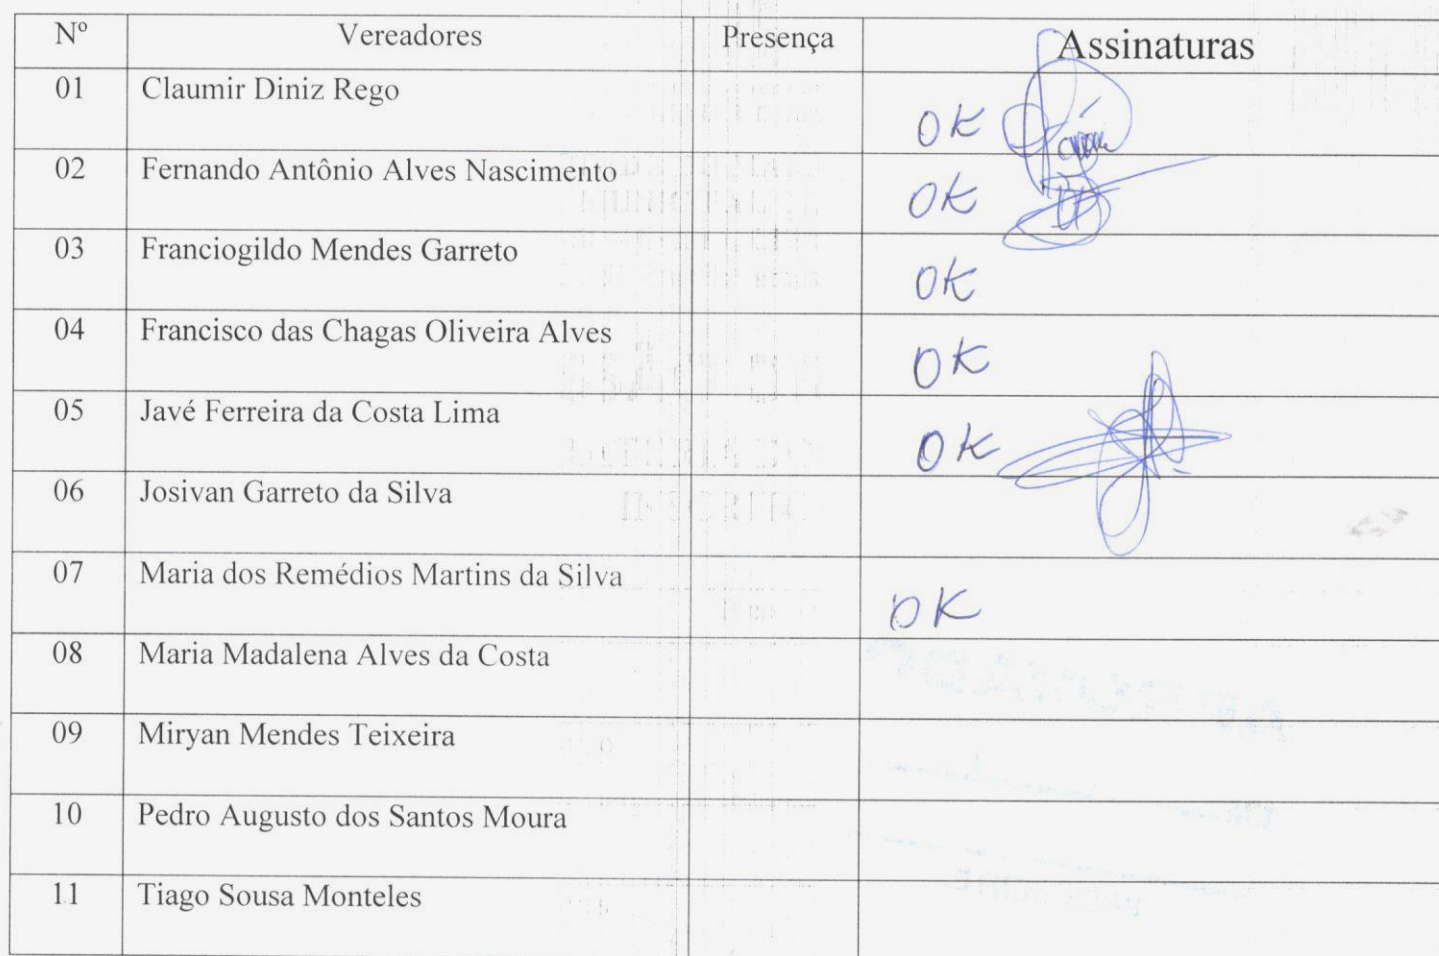 Nº Vereadores Presença Assinaturas
01 Claumir Diniz Rego OK
02 Fernando Antônio Alves Nascimento OK
03 Franciogildo Mendes Garreto OK
04 Francisco das Chagas Oliveira Alves OK
05 Javé Ferreira da Costa Lima OK
06 Josivan Garreto da Silva
07 Maria dos Remédios Martins da Silva OK
08 Maria Madalena Alves da Costa
09 Miryan Mendes Teixeira
10 Pedro Augusto dos Santos Moura
11 Tiago Sousa Monteles